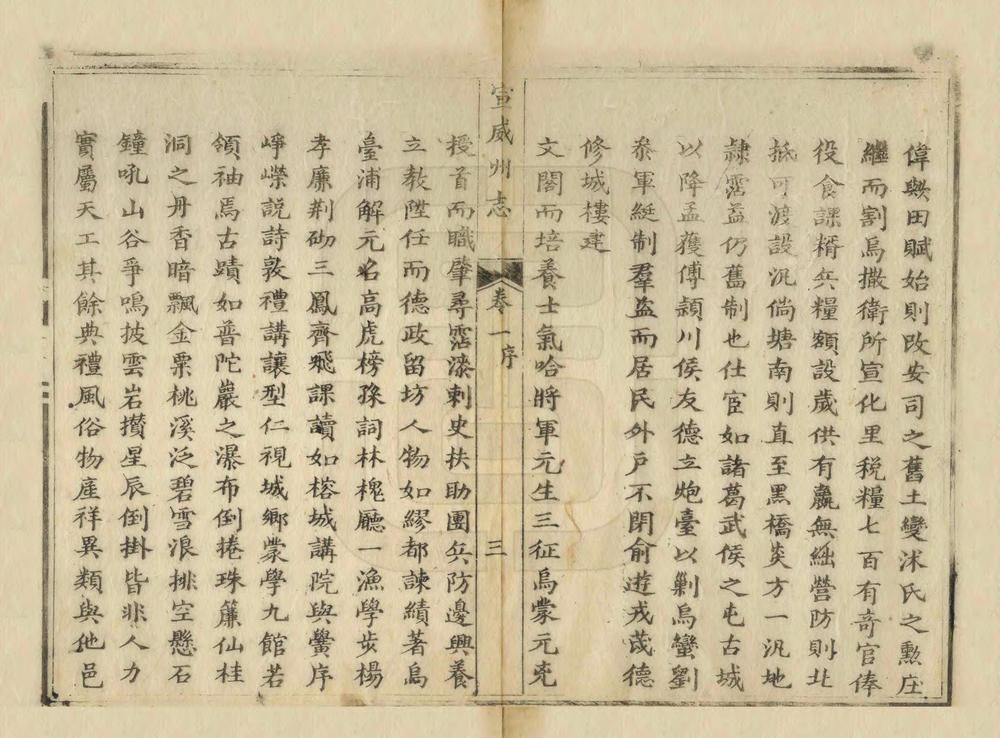 偉歟田賦始則改安司之舊土變沐氏之勲庄
繼而割烏撒衛所宣化里税糧七百有奇官俸
役食課糈兵糧額設歲供有嬴無絀營防則北
抵可渡設汛倘塘南則直至黑橋炎方一汎地
隷霑益仍舊制也仕宦如諸葛武侯之屯古城
以降孟獲傅頴川侯友德立炮臺以剿烏蠻劉
叅軍綎制羣盗而居民外户不閉俞遊戎茂德
修城樓建
文閣而培養士氣哈將軍元生三征烏蒙元兇
宣威州志
卷一序
三
授首而職肇尋霑漆刺史扶助團兵防邊興養
立教陞任而德政留坊人物如繆都諫績著烏
臺浦解元名高虎榜孫詞林槐廳一漁學步楊
孝廉荆砌三鳳齊飛課讀如榕城講院與黌序
峥嶸説詩敦禮講讓型仁視城鄉蒙學九館若
領袖焉古蹟如普陀巖之瀑布倒捲珠簾仙桂
洞之丹香暗飄金粟桃溪泛碧雪浪排空懸石
鐘吼山谷爭鳴披雲岩攢星辰倒掛皆非人力
實屬天工其餘典禮風俗物產祥異類與他邑